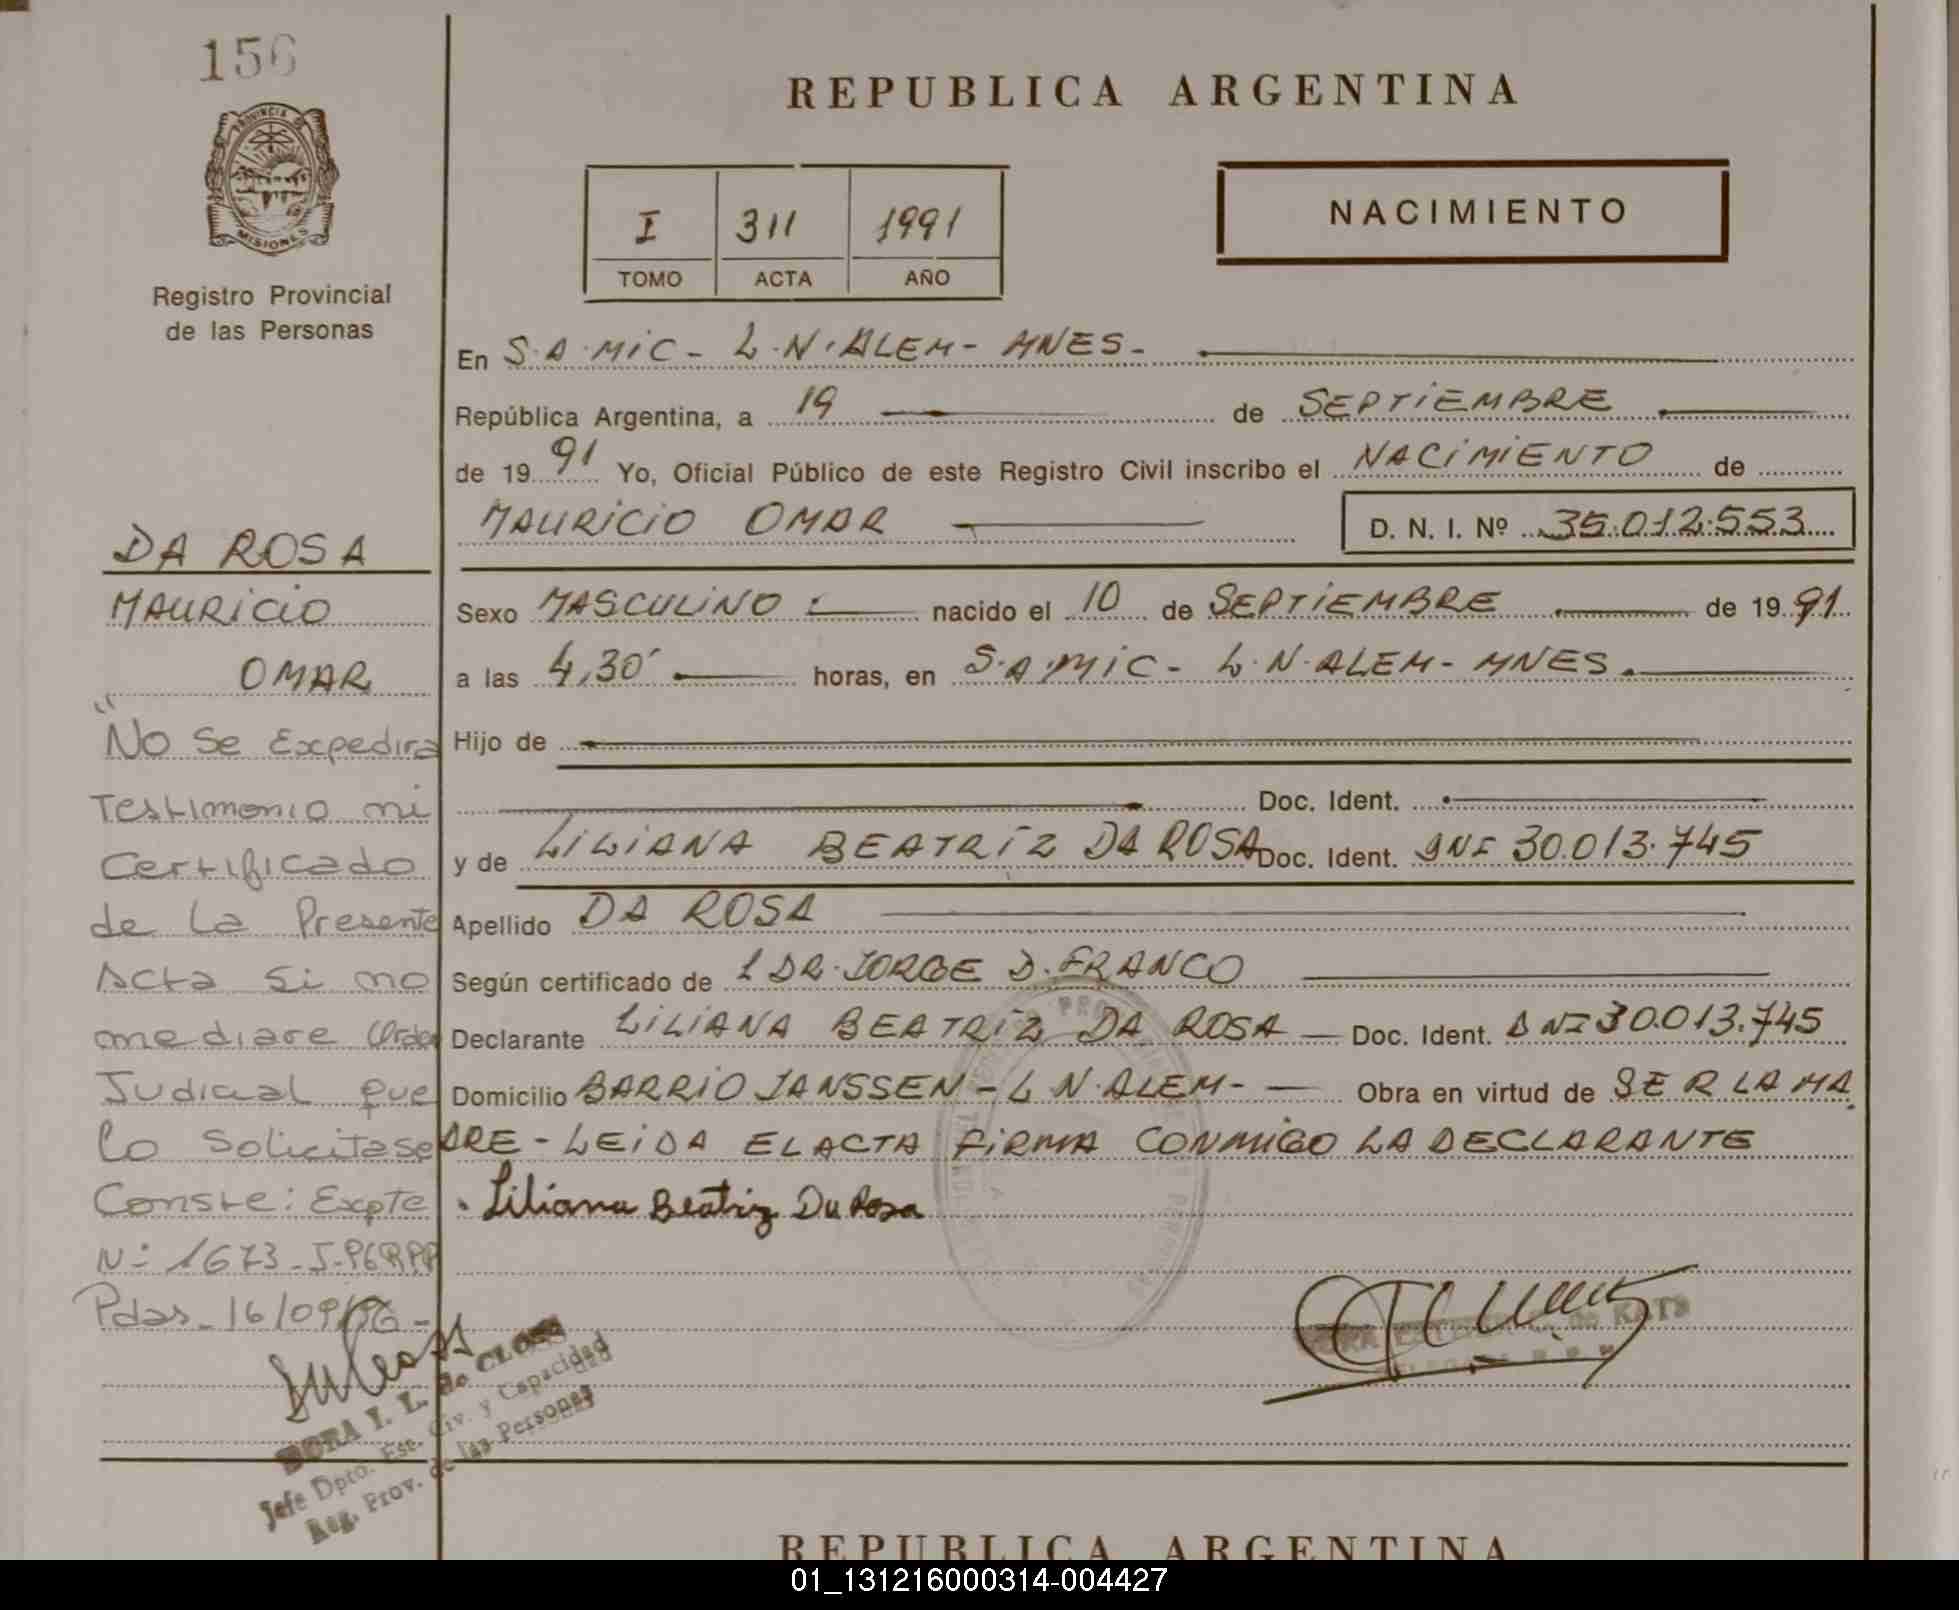 156
PROVINCIA DE
MISIONES
Registro Provincial
de las Personas
REPUBLICA ARGENTINA
I 311 1991
TOMO ACTA AÑO
NACIMIENTO
En S.A.MIC- L.N.ALEM- MNES-
República Argentina, a 19 de SEPTIEMBRE
de 1991 Yo, Oficial Público de este Registro Civil inscribo el NACIMIENTO de
MAURICIO OMAR D. N. I. Nº 35.012.553
Sexo MASCULINO nacido el 10 de SEPTIEMBRE de 1991
a las 4,30' horas, en S.A.MIC- L.N.ALEM- MNES.
Hijo de
Doc. Ident.
y de LILIANA BEATRIZ DA ROSA Doc. Ident. DNI 30.013.745
Apellido DA ROSA
Según certificado de DR. JORGE D. FRANCO
Declarante LILIANA BEATRIZ DA ROSA — Doc. Ident. DNI 30.013.745
Domicilio BARRIO JANSSEN - L N.ALEM- — Obra en virtud de SER LA MA
DRE - LEIDA EL ACTA FIRMA CONMIGO LA DECLARANTE
Liliana Beatriz Da Rosa
DA ROSA
MAURICIO
OMAR
"No Se Expedira
Testimonio ni
Certificado
de La Presente
Acta Si no
mediare Orden
Judicial que
lo Solicitase
Conste: Expte
N: 1673-J-96RPP
Pdas-16/09/96-
DORA I. L. de CLOSS
Jefe Dpto. Est. Civ. y Capacidad
Reg. Prov. de las Personas
de KATS
REPUBLICA ARGENTINA
01_131216000314-004427